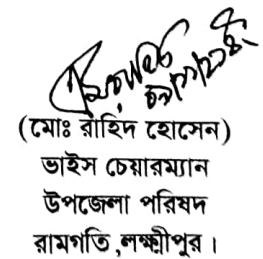 (মোঃ রাহিদ হোসেন)
ভাইস চেয়ারম্যান
উপজেলা পরিষদ
রামগতি ,লক্ষ্মীপুর ।